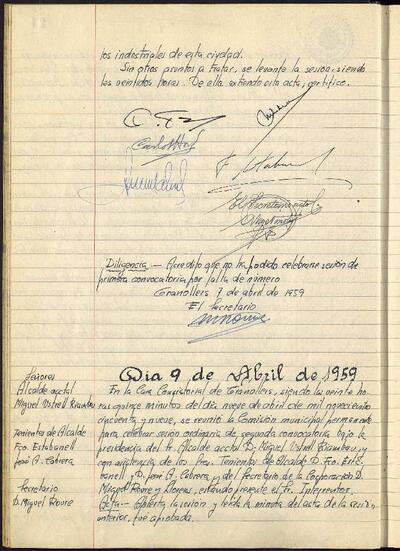 los industriales de esta ciudad.
Sin otros asuntos a tratar, se levanta la sesion, siendo
las veintidos horas. De ella extiendo esta acta, certifico.
El Secretario acctal.
Diligencia — Acredito que no ha podido celebrarse sesión de
primera convocatoria por falta de número
Granollers 7 de abril de 1959
El Secretario
Día 9 de Abril de 1959
Señores
Alcalde acctal
Miguel Ustrell Riambau
Tenientes de Alcalde
Fco. Estabanell
José A. Cabrera
Secretario
D. Miguel Roure
En la Casa Consistorial de Granollers, siendo las veinte ho
ras quince minutos del día nueve de abril de mil novecientos
cincuenta y nueve, se reunió la Comisión municipal permanente
para celebrar sesión ordinaria de segunda convocatoria bajo la
presidencia del Sr. Alcalde acctal D. Miguel Ustrell Riambau y
con asistencia de los Sres. Tenientes de Alcalde D. Fco. Esta
banell y D. José A. Cabrera, y del Secretario de la Corporación D.
Miguel Roure y Llorens, estando presente el Sr. Interventor.
Acta — Abierta la sesión y leida la minuta del acta de la sesión
anterior, fue aprobada.